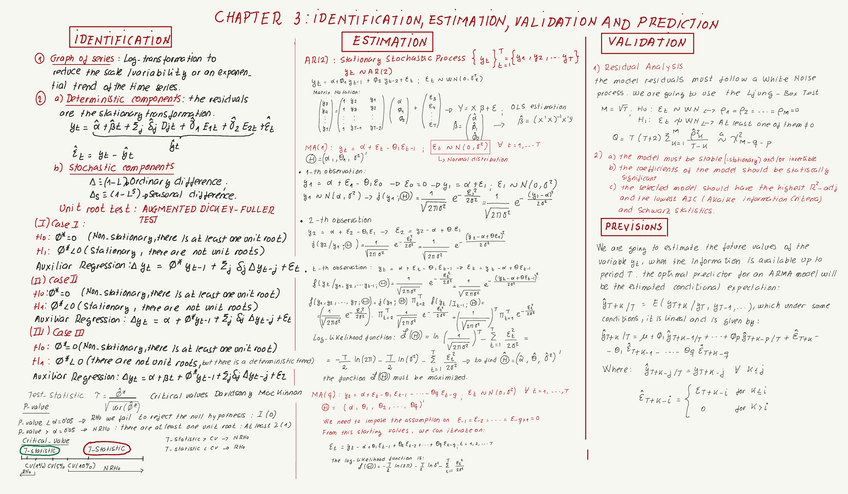 CHAPTER 3: IDENTIFICATION, ESTIMATION, VALIDATION AND PREDICTION
IDENTIFICATION
1 Graph of series: Log-transformation to
reduce the scale /variability or an exponen-
tial trend of the time series.
2 a) Deterministic components: the residuals
are the stationary transformation.
ŷt = α̂ + β̂t + Σj δ̂j Djt + θ̂1 E1t + θ̂2 E2t + Êt
ŷt
Êt = yt - ŷt
b) Stochastic components
Δ = (1-L) Ordinary difference.
Δs = (1-L^s) → Seasonal difference.
Unit root test: AUGMENTED DICKEY-FULLER
TEST
(I) Case I:
H0: Ø*=0 (Non-stationary, there is at least one unit root)
H1: Ø*<0 (Stationary, there are not unit roots)
Auxiliar Regression: Δyt = Ø* yt-1 + Σj δj Δyt-j + Et
(II) Case II
H0: Ø*=0 (Non-stationary, there is at least one unit root)
H1: Ø*<0 (Stationary, there are not unit roots)
Auxiliar Regression: Δyt = α + Ø* yt-1 + Σj δj Δyt-j + Et
(III) Case III
H0: Ø*=0 (Non-stationary, there is at least one unit root)
H1: Ø*<0 (there are not unit roots, but there is a deterministic trend)
Auxiliar Regression: Δyt = α + βt + Ø* yt-1 + Σj δj Δyt-j + Et
Test-Statistic T = Ø̂* / √var(Ø̂*) Critical values Davidson y MacKinnon
P-value
P-value < α=0.05 → RH0
P-value > α=0.05 → NRH0: there are at least one unit root: At least I(1)
Critical-value
T-statistic > CV → NRH0
T-statistic < CV → RH0
T-statistic T-statistic
CV(1%) CV(5%) CV(10%) NRH0
RH0
ESTIMATION
AR(2): Stationary Stochastic Process {yt} T t=1 = {y1, y2, ... yT}
yt ~ AR(2)
yt = α + Φ1 yt-1 + Φ2 yt-2 + Et ; Et ~ WN(0, σ²)
Matrix Notation:
→ Y = Xβ + E ; OLS estimation
β̂ = (X'X)^-1 X'y
MA(1): yt = α + Et - Θ1 Et-1 ; Et ~ N(0, σ²) ∀ t=1,...T
Ⓗ = (α, Θ1, σ²)' ↳ Normal distribution
• 1-th observation:
y1 = α + E1 - Θ1 E0 → E0 = 0 → y1 = α + E1 ; E1 ~ N(0, σ²)
• 2-th observation
y2 = α + E2 - Θ1 E1 → E2 = y2 - α + Θ1 E1
• t-th observation: yt = α + Et - Θ1 Et-1 → Et = yt - α + Θ1 Et-1
Log-Likelihood function:
= -T/2 ln(2π) - T/2 ln(σ²) - Σ T t=1 Et²/2σ² → to find Ⓗ̂ (α̂, Θ̂, σ̂²)'
the function ℓ(Ⓗ) must be maximized.
MA(q): yt = α + Et - Θ1 Et-1 - ... Θq Et-q , Et ~ N(0, σ²) ∀ t=1,...,T
Ⓗ = (α, Θ1, Θ2, ..., Θq)'
We need to impose the assumption on E0 = E-1 = .... = E-q+1 = 0
From this starting values, we can iterate on:
Et = yt - α + Θ1 Et-1 + Θ2 Et-2 + ... + Θq Et-q , t=1,2,...,T
The log-likelihood function is:
ℓ(Ⓗ) = -T/2 ln(2π) - T/2 ln σ² - Σ T t=1 Et²/2σ²
VALIDATION
1) Residual Analysis
the model residuals must follow a White Noise
process. we are going to use the Ljung-Box Test
M = √T . H0: Et ~ WN → ρ1 = ρ2 = ... = ρM = 0
H1: Et ≁ WN → At least one of them ≠ 0
Q = T(T+2) Σ M k=1 ρ̂k² / T-k ~ χ² M-q-p
2) a) the model must be stable (stationary) and/or invertible
b) the coefficients of the model should be statistically
significant
c) the selected model should have the highest R²-adj
and the lowest AIC (Akaike Information Criteria)
and Schwarz statistics.
PREVISIONS
We are going to estimate the future values of the
variable yt, when the information is available up to
period T. the optimal predictor for an ARMA model will
be the estimated conditional expectation:
ŷT+k/T = E(yT+k / yT, yT-1, ...), which under some
conditions, it is lineal and is given by:
ŷT+k/T = μ + Φ1 ŷT+k-1/T + ... + Φp ŷT+k-p/T + ÊT+k -
- Θ1 ÊT+k-1 - .... Θq ÊT+k-q
Where: ŷT+k-j/T = yT+k-j ∀ k≤j
ÊT+k-i = { ET+k-i for k≤i
0 for k>i